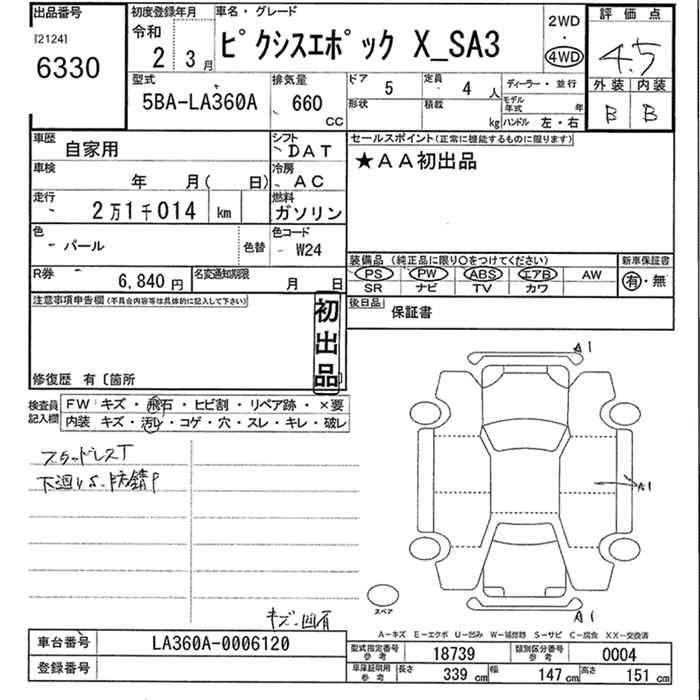 出品番号
[2124]
6330
初度登録年月
令和
2 3月
車名・グレード
ピクシスエポック X_SA3
2WD
・
4WD
評価点
4.5
外装 内装
B B
型式
5BA-LA360A
排気量
660
CC
ドア 5
定員 4 人
形状
積載 kg
ディーラー・並行
モデル年式 年
ハンドル 左・右
車歴 自家用
シフト DAT
車検 年 月( 日)
冷房 AC
走行 2万1千014 km
燃料 ガソリン
色 パール
色替
色コード W24
R券 6,840 円
名変通知期限 月 日
セールスポイント(正常に機能するものに限ります)
★AA初出品
装備品 (純正品に限り○をつけてください)
PS PW ABS エアB AW
SR ナビ TV カワ
新車保証書
有・無
後日品 保証書
注意事項申告欄(不具合内容等は具体的に記入して下さい)
初出品
修復歴 有〔箇所
検査員記入欄
FW キズ・飛石・ヒビ割・リペア跡・×要
内装 キズ・汚レ・コゲ・穴・スレ・キレ・破レ
スタッドレスT
A1
A1
A1
スペア
A-キズ E-エクボ U-凹み W-補修跡 S-サビ C-腐食 XX-交換済
車台番号 LA360A-0006120
登録番号
型式指定番号 参考 18739
類別区分番号 参考 0004
車庫証明用 参考 長さ 339 cm 幅 147 cm 高さ 151 cm